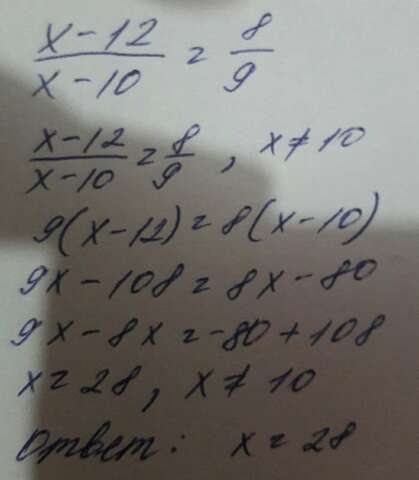 x-12/x-10 = 8/9
x-12/x-10 = 8/9, x≠10
9(x-12)=8(x-10)
9x-108=8x-80
9x-8x=-80+108
x=28, x≠10
Ответ: x=28